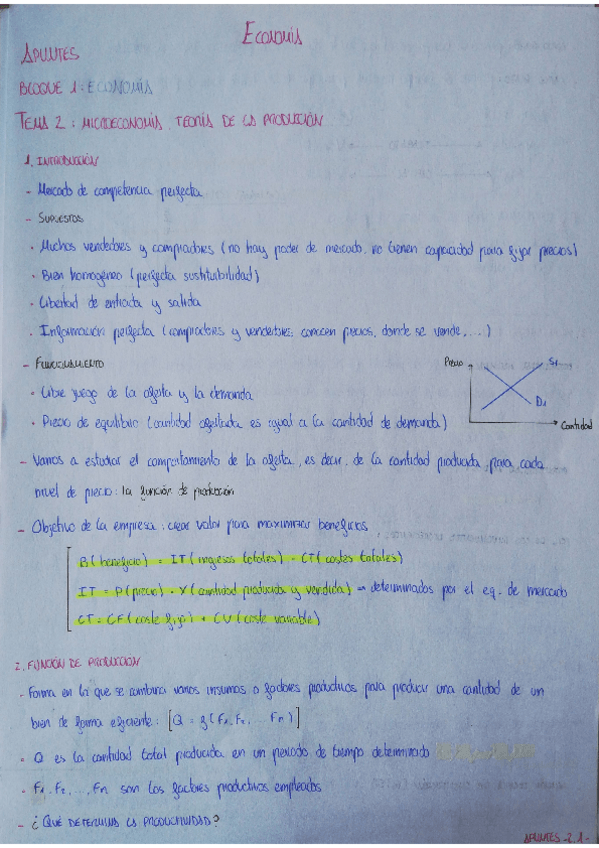 ECONOMÍA
APUNTES
BLOQUE 1: ECONOMÍA
TEMA 2: MICROECONOMÍA. TEORÍA DE LA PRODUCCIÓN
1. INTRODUCCIÓN
- Mercado de competencia perfecta
- SUPUESTOS
· Muchos vendedores y compradores (no hay poder de mercado, no tienen capacidad para fijar precios)
· Bien homogéneo (perfecta sustituibilidad)
· Libertad de entrada y salida
· Información perfecta (compradores y vendedores: conocen precios, donde se vende, ...)
- FUNCIONAMIENTO
Precio
S1
· Libre juego de la oferta y la demanda
D1
· Precio de equilibrio (cantidad ofertada es igual a la cantidad de demanda)
Cantidad
- Vamos a estudiar el comportamiento de la oferta, es decir, de la cantidad producida, para cada
nivel de precio: la función de producción
- Objetivo de la empresa: crear valor para maximizar beneficios.
B (beneficio) = IT (ingresos totales) - CT (costes totales)
IT = P (precio) · Y (cantidad producida y vendida) → determinados por el eq. de mercado
CT = CF (coste fijo) + CV (coste variable)
2. FUNCIÓN DE PRODUCCIÓN
- Forma en la que se combina varios insumos o factores productivos para producir una cantidad de un
bien de forma eficiente: [Q = f (F1, F2, ... Fn)]
· Q es la cantidad total producida en un periodo de tiempo determinado
· F1, F2, ..., Fn son los factores productivos empleados
- ¿QUÉ DETERMINA LA PRODUCTIVIDAD?
APUNTES -2.1-